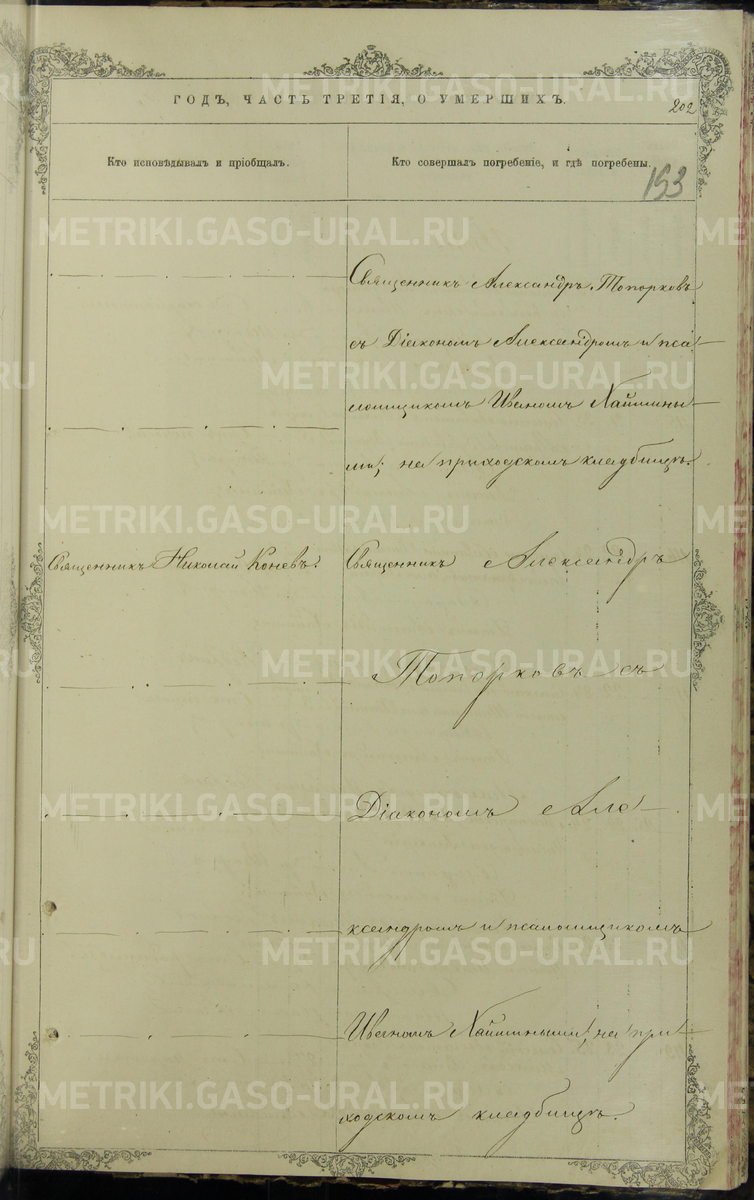 ГОДЪ, ЧАСТЬ ТРЕТІЯ, О УМЕРШИХЪ.
202
Кто исповѣдывалъ и пріобщалъ.
Кто совершалъ погребеніе, и гдѣ погребены.
193
Священникъ Александръ Топорковъ
съ Діакономъ Александромъ и пса-
ломщикомъ Иваномъ Хаймины-
ми; на приходскомъ кладбищѣ.
Священникъ Николай Коневъ.
Священникъ Александръ
Топорковъ съ
Діакономъ Але-
ксандромъ и псаломщикомъ
Иваномъ Хаймиными, на при-
ходскомъ кладбищѣ.
METRIKI.GASO-URAL.RU